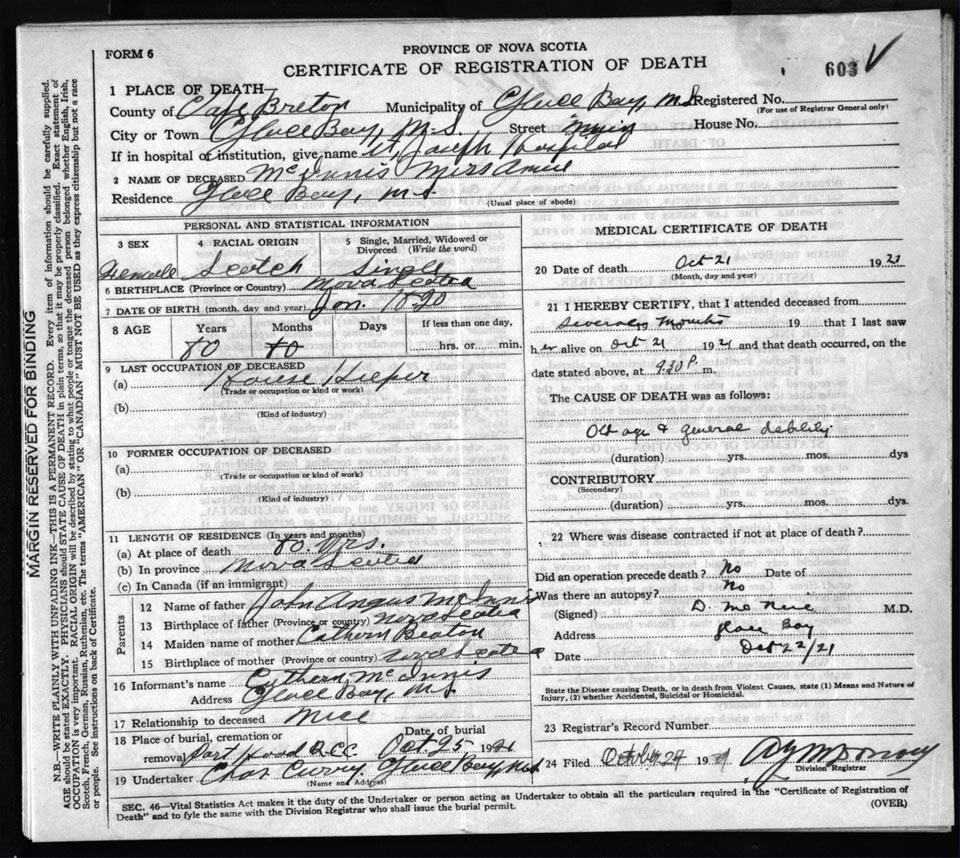 FORM 6
PROVINCE OF NOVA SCOTIA
CERTIFICATE OF REGISTRATION OF DEATH
603
MARGIN RESERVED FOR BINDING
N.B.—WRITE PLAINLY WITH UNFADING INK—THIS IS A PERMANENT RECORD. Every item of information should be carefully supplied.
AGE should be stated EXACTLY. PHYSICIANS should STATE CAUSE OF DEATH in plain terms, so that it may be properly classified. Exact statement of
OCCUPATION is very important. RACIAL ORIGIN will be described by stating to what people or tongue the deceased person belonged whether English, Irish,
Scotch, French, German, Russian, Ruthenian, etc. The terms "AMERICAN" OR "CANADIAN" MUST NOT BE USED as they express citizenship but not a race
or people. See instructions on back of Certificate.
1 PLACE OF DEATH
County of Cape Breton Municipality of Glace Bay, N.S Registered No.
(For use of Registrar General only)
City or Town Glace Bay, N.S. Street Main House No.
If in hospital or institution, give name St Joseph Hospital
2 NAME OF DECEASED McInnis Miss Annie
Residence Glace Bay, N.S
(Usual place of abode)
PERSONAL AND STATISTICAL INFORMATION
3 SEX 4 RACIAL ORIGIN 5 Single, Married, Widowed or Divorced (Write the word)
Female Scotch Single
6 BIRTHPLACE (Province or Country) Nova Scotia
7 DATE OF BIRTH (month, day and year) Jan.
8 AGE Years Months Days If less than one day,
80 hrs. or min.
9 LAST OCCUPATION OF DECEASED
(a) House Keeper
(Trade or occupation or kind or work)
(b)
(Kind of industry)
10 FORMER OCCUPATION OF DECEASED
(a)
(Trade or occupation or kind or work)
(b)
(Kind of industry)
11 LENGTH OF RESIDENCE (In years and months)
(a) At place of death 80 yrs.
(b) In province Nova Scotia
(c) In Canada (if an immigrant)
Parents
12 Name of father John Angus McInnis
13 Birthplace of father (Province or country) Nova Scotia
14 Maiden name of mother Cathern Beaton
15 Birthplace of mother (Province or country) Nova Scotia
16 Informant's name Cathern McInnis
Address Glace Bay, N.S
17 Relationship to deceased Niece
18 Place of burial, cremation or removal Port Hood Date of burial Oct 25 1921
19 Undertaker Chas Curry, Glace Bay, N.S
(Name and Address)
MEDICAL CERTIFICATE OF DEATH
20 Date of death Oct 21 1921
(Month, day and year)
21 I HEREBY CERTIFY, that I attended deceased from
several months 19 that I last saw
her alive on Oct 21 1921 and that death occurred, on the
date stated above, at 9.30 P. m.
The CAUSE OF DEATH was as follows:
Old age & general debility
(duration) yrs. mos. dys
CONTRIBUTORY
(Secondary)
(duration) yrs. mos. dys.
22 Where was disease contracted if not at place of death?
Did an operation precede death? No Date of
Was there an autopsy? No
(Signed) D. McNeil M.D.
Address Glace Bay
Date Oct 22/21
State the Disease causing Death, or in death from Violent Causes, state (1) Means and Nature of
Injury, (2) whether Accidental, Suicidal or Homicidal.
23 Registrar's Record Number
24 Filed October 24 1921
Division Registrar
SEC. 46—Vital Statistics Act makes it the duty of the Undertaker or person acting as Undertaker to obtain all the particulars required in the "Certificate of Registration of
Death" and to fyle the same with the Division Registrar who shall issue the burial permit. (OVER)